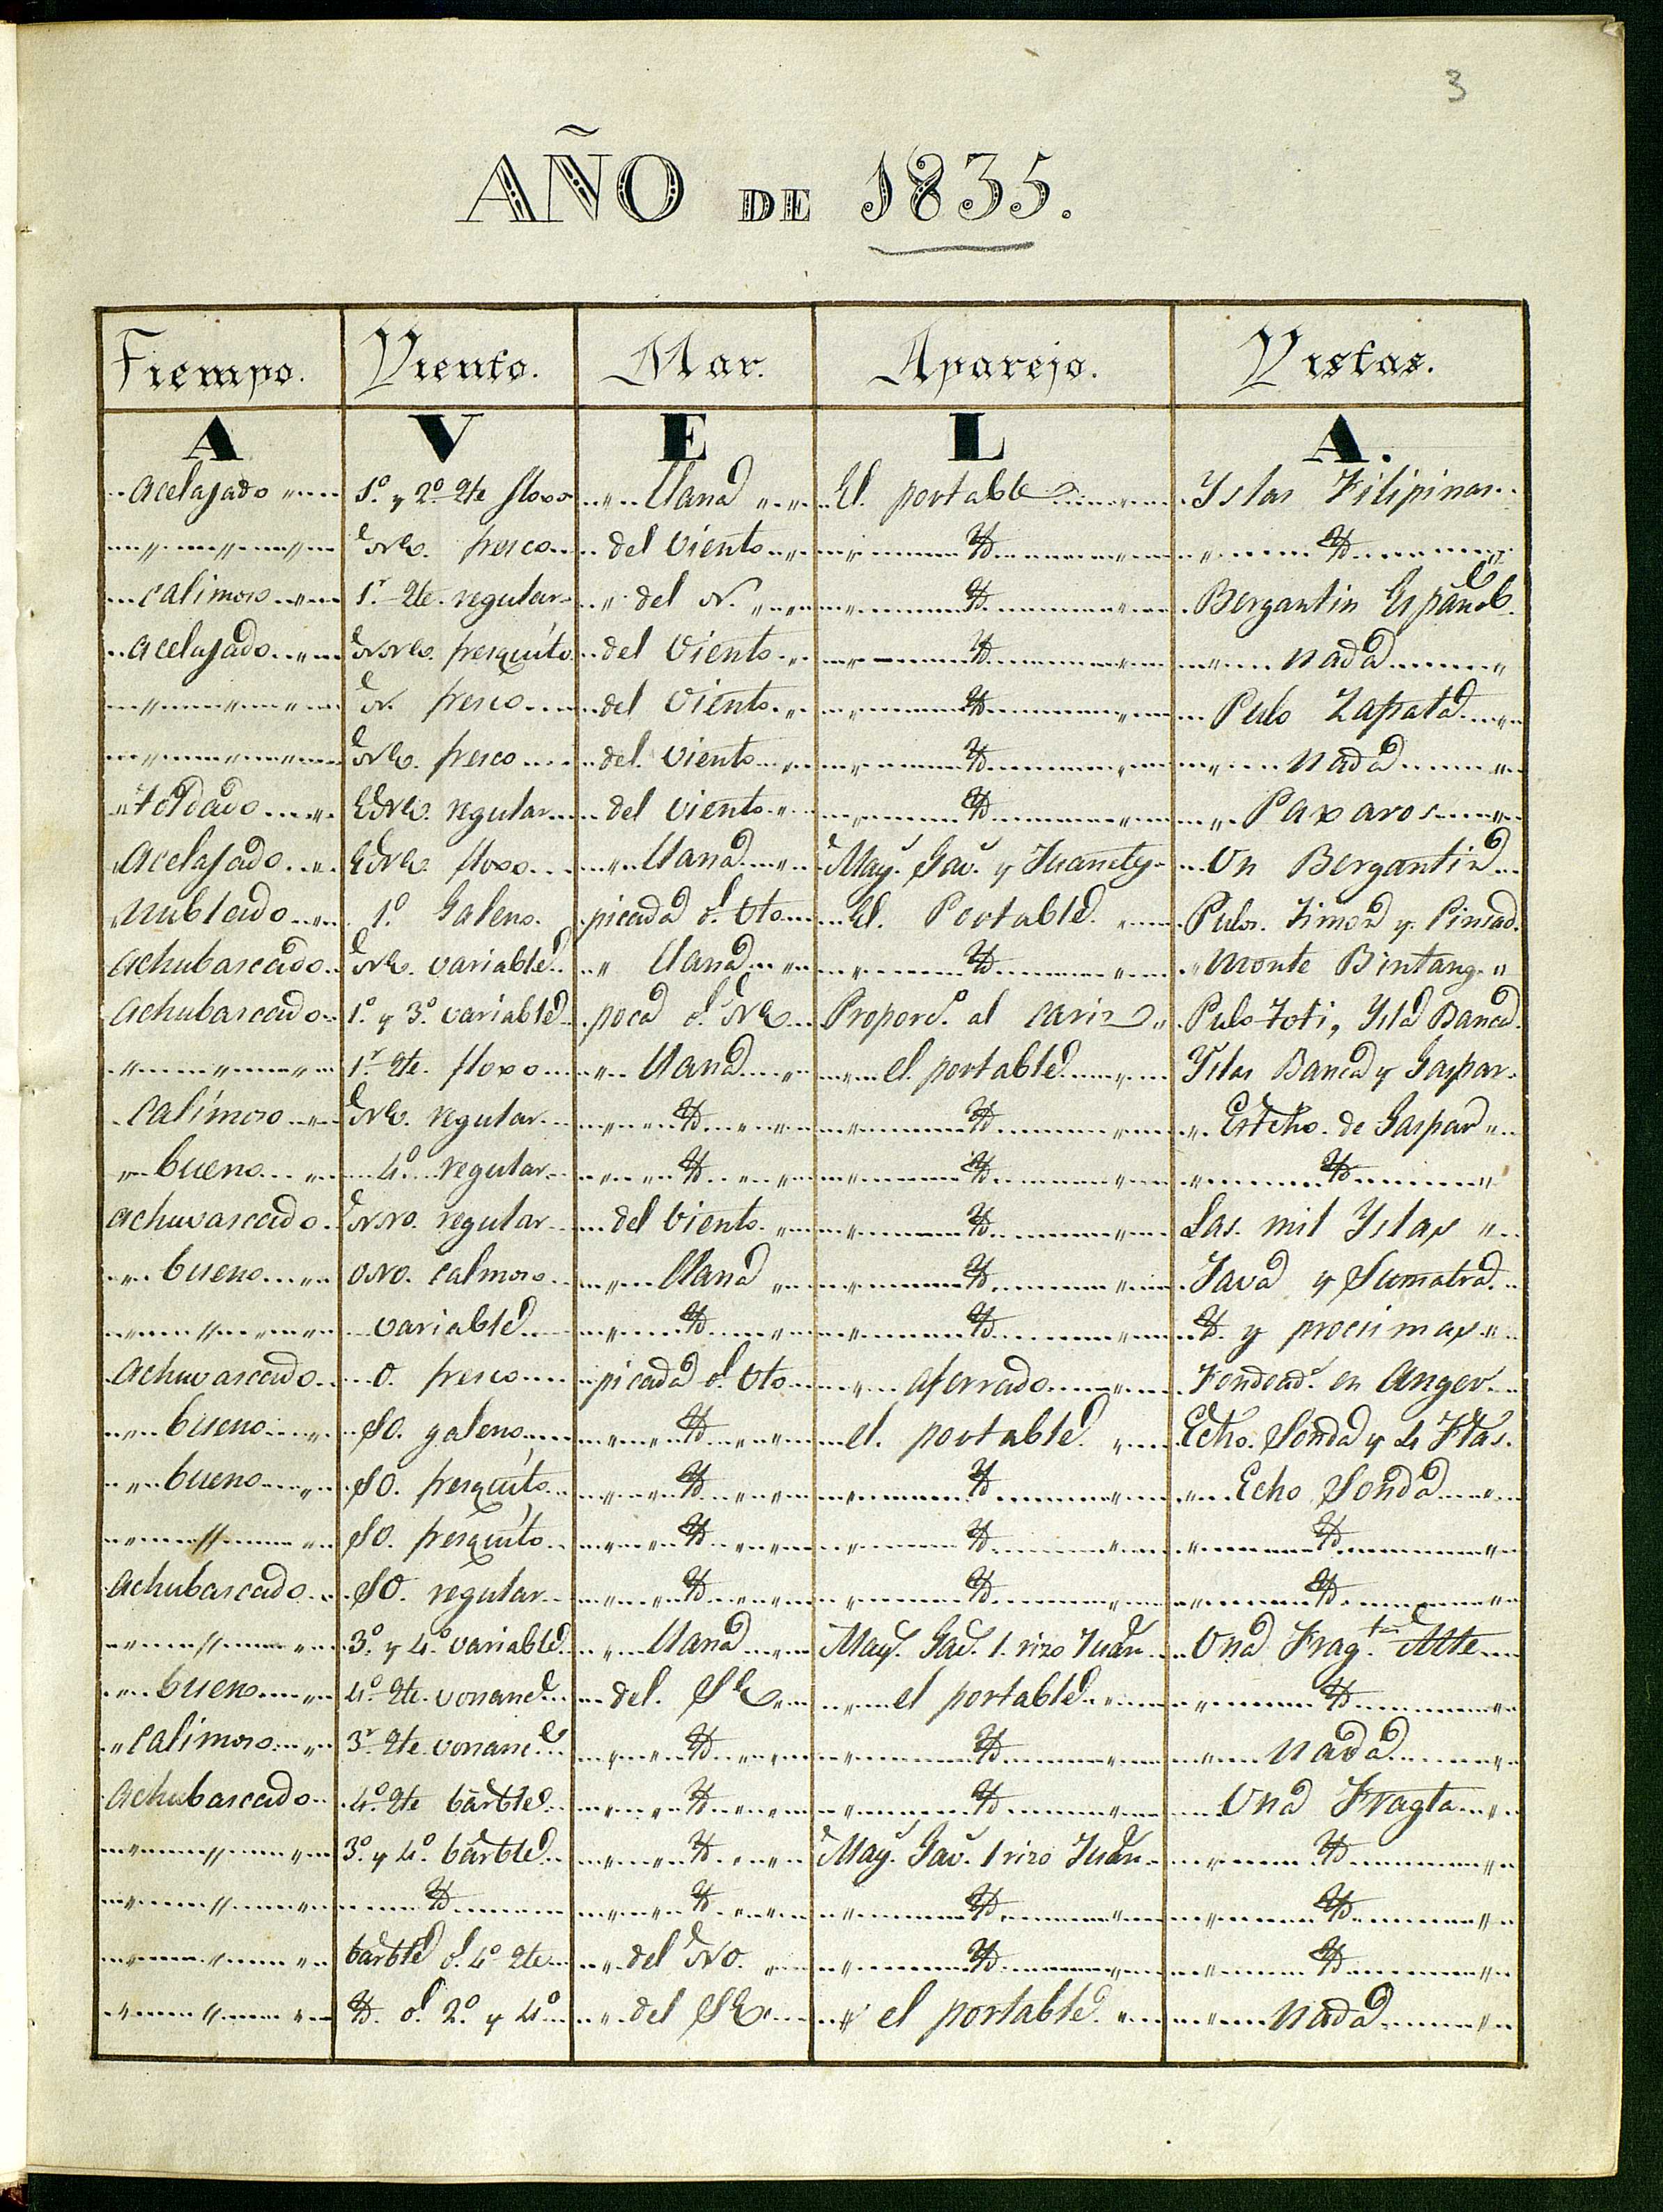 3
AÑO DE 1835.
Tiempo. Viento. Mar. Aparejo. Vistas.
A V E L A.
Acelajado 1º y 2º 2te floxo llana El portable Yslas Filipinas
" NE. fresco del Viento Yd Yd
Calimoso 1r 2te regular del N. Yd Bergantin Español
Acelajado NNE. fresquito del Viento Yd nada
" N. fresco del Viento Yd Pulo Zapata
" NE. fresco del Viento Yd nada
toldado ENE. regular del viento Yd Paxaros
Acelajado ENE. floxo llana May. Gav. y Juanets Un Bergantin
Nublado 1º Galeno picada dl. Vto El Portable Pulos. Timon y
Achubascado NE. variable llana Yd Monte Bintang
Achubascado 1º y 3º variable poca dl. NE Proporc. al cariz Pulo Toti, Ysla Banca
" 1r 2te. floxo llana el portable Yslas Banca y Gaspar
Calimoso NE. regular Yd Yd Estcho. de Gaspar
bueno 4º regular Yd Yd Yd
achuvascado NNO. regular del Viento Yd Las mil Yslas
bueno ONO. Calmoso llana Yd Java y Sumatra
" variable Yd Yd Yd. y procsimas
Achuvascado O. fresco picada dl. Vto aferrado Fondeads. en Anger
bueno SO. galeno Yd el portable Echo. Sonda y 4 Ftas.
bueno SO. fresquito Yd Yd Echo Sonda
" SO. fresquito Yd Yd Yd
Achubascado SO regular Yd Yd Yd
" 3º y 4º variable llana May. Gav. 1. rizo Juan Una Fragta.
bueno 4º 2te. vonanc. del SE el portable Yd
Calimoso 3r 2te vonanc. Yd Yd nada
Achubascado 4º 2te barble Yd Yd Una Fragta
" 3º y 4º barble Yd May. Gav. 1 rizo Juan Yd
" Yd Yd Yd Yd
" barble dl. 4º 2te del NO. Yd Yd
" Yd. dl. 2º y 4º del SE el portable nada